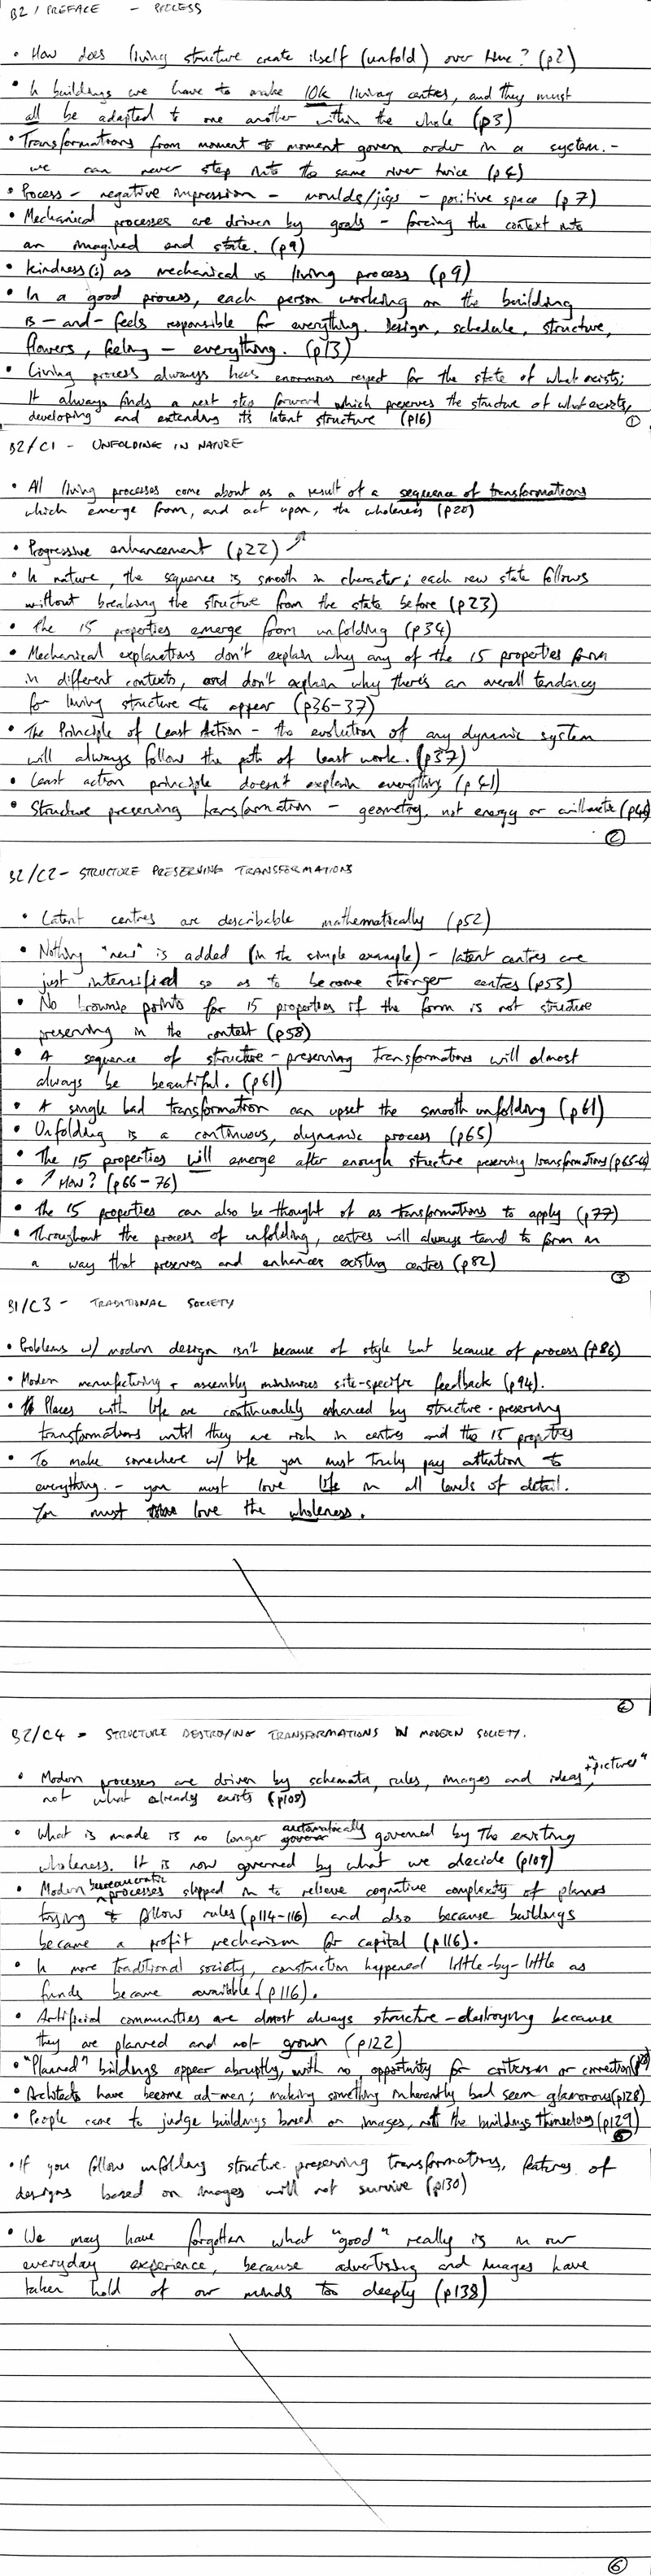 B2 / PREFACE - PROCESS
• How does living structure create itself (unfold) over time? (p2)
• In buildings we have to make 10k living centres, and they must
all be adapted to one another within the whole (p3)
• Transformations from moment to moment govern order in a system. -
we can never step into the same river twice (p4)
• Process - negative impression - moulds/jigs - positive space (p7)
• Mechanical processes are driven by goals - forcing the context into
an imagined end state. (p9)
• Kindness(!) as mechanical vs living process (p9)
• In a good process, each person working on the building
is - and - feels responsible for everything. Design, schedule, structure,
flowers, feeling - everything. (p13)
• Living process always has enormous respect for the state of what exists;
It always finds a next step forward which preserves the structure of what exists,
developing and extending its latent structure (p16)
1
B2/C1 - UNFOLDING IN NATURE
• All living processes come about as a result of a sequence of transformations
which emerge from, and act upon, the wholeness (p20)
• Progressive enhancement (p22) ↗
• In nature, the sequence is smooth in character; each new state follows
without breaking the structure from the state before (p23)
• The 15 properties emerge from unfolding (p34)
• Mechanical explanations don't explain why any of the 15 properties form
in different contexts, and don't explain why there's an overall tendency
for living structure to appear (p36-37)
• The Principle of Least Action - the evolution of any dynamic system
will always follow the path of least work. (p37)
• Least action principle doesn't explain everything (p41)
• Structure preserving transformation - geometry, not energy or arithmetic
2
B2/C2 - STRUCTURE PRESERVING TRANSFORMATIONS
• Latent centres are describable mathematically (p52)
• Nothing "new" is added (in the simple example) - latent centres are
just intensified so as to become stronger centres (p53)
• No brownie points for 15 properties if the form is not structure
preserving in the context (p58)
• A sequence of structure-preserving transformations will almost
always be beautiful. (p61)
• A single bad transformation can upset the smooth unfolding (p61)
• Unfolding is a continuous, dynamic process (p65)
• The 15 properties will emerge after enough structure preserving transformations (p65-66)
• ↗ How? (p66-76)
• The 15 properties can also be thought of as transformations to apply (p77)
• Throughout the process of unfolding, centres will always tend to form in
a way that preserves and enhances existing centres (p82)
3
B1/C3 - TRADITIONAL SOCIETY
• Problems w/ modern design isn't because of style but because of process (p86)
• Modern manufacturing + assembly minimises site-specific feedback (p94).
• Places with life are continuously enhanced by structure-preserving
transformations until they are rich in centres and the 15 properties
• To make somewhere w/ life you must truly pay attention to
everything. - you must love life in all levels of detail.
You must love the wholeness.
4
B2/C4 - STRUCTURE DESTROYING TRANSFORMATIONS IN MODERN SOCIETY.
• Modern processes are driven by schemata, rules, images and ideas, + "pictures"
not what already exists (p108)
• What is made is no longer automatically governed by the existing
wholeness. It is now governed by what we decide (p109)
• Modern bureaucratic processes slipped in to relieve cognitive complexity of planners
trying to follow rules (p114-116) and also because buildings
became a profit mechanism for capital (p116).
• In more traditional society, construction happened little-by-little as
funds became available (p116).
• Artificial communities are almost always structure-destroying because
they are planned and not grown (p122)
• "Planned" buildings appear abruptly, with no opportunity for criticism or correction
• Architects have become ad-men; making something inherently bad seem glamorous (p128)
• People came to judge buildings based on images, not the buildings themselves (p129)
5
• If you follow unfolding structure-preserving transformations, features of
designs based on images will not survive (p130)
• We may have forgotten what "good" really is in our
everyday experience, because advertising and images have
taken hold of our minds too deeply (p138)
6